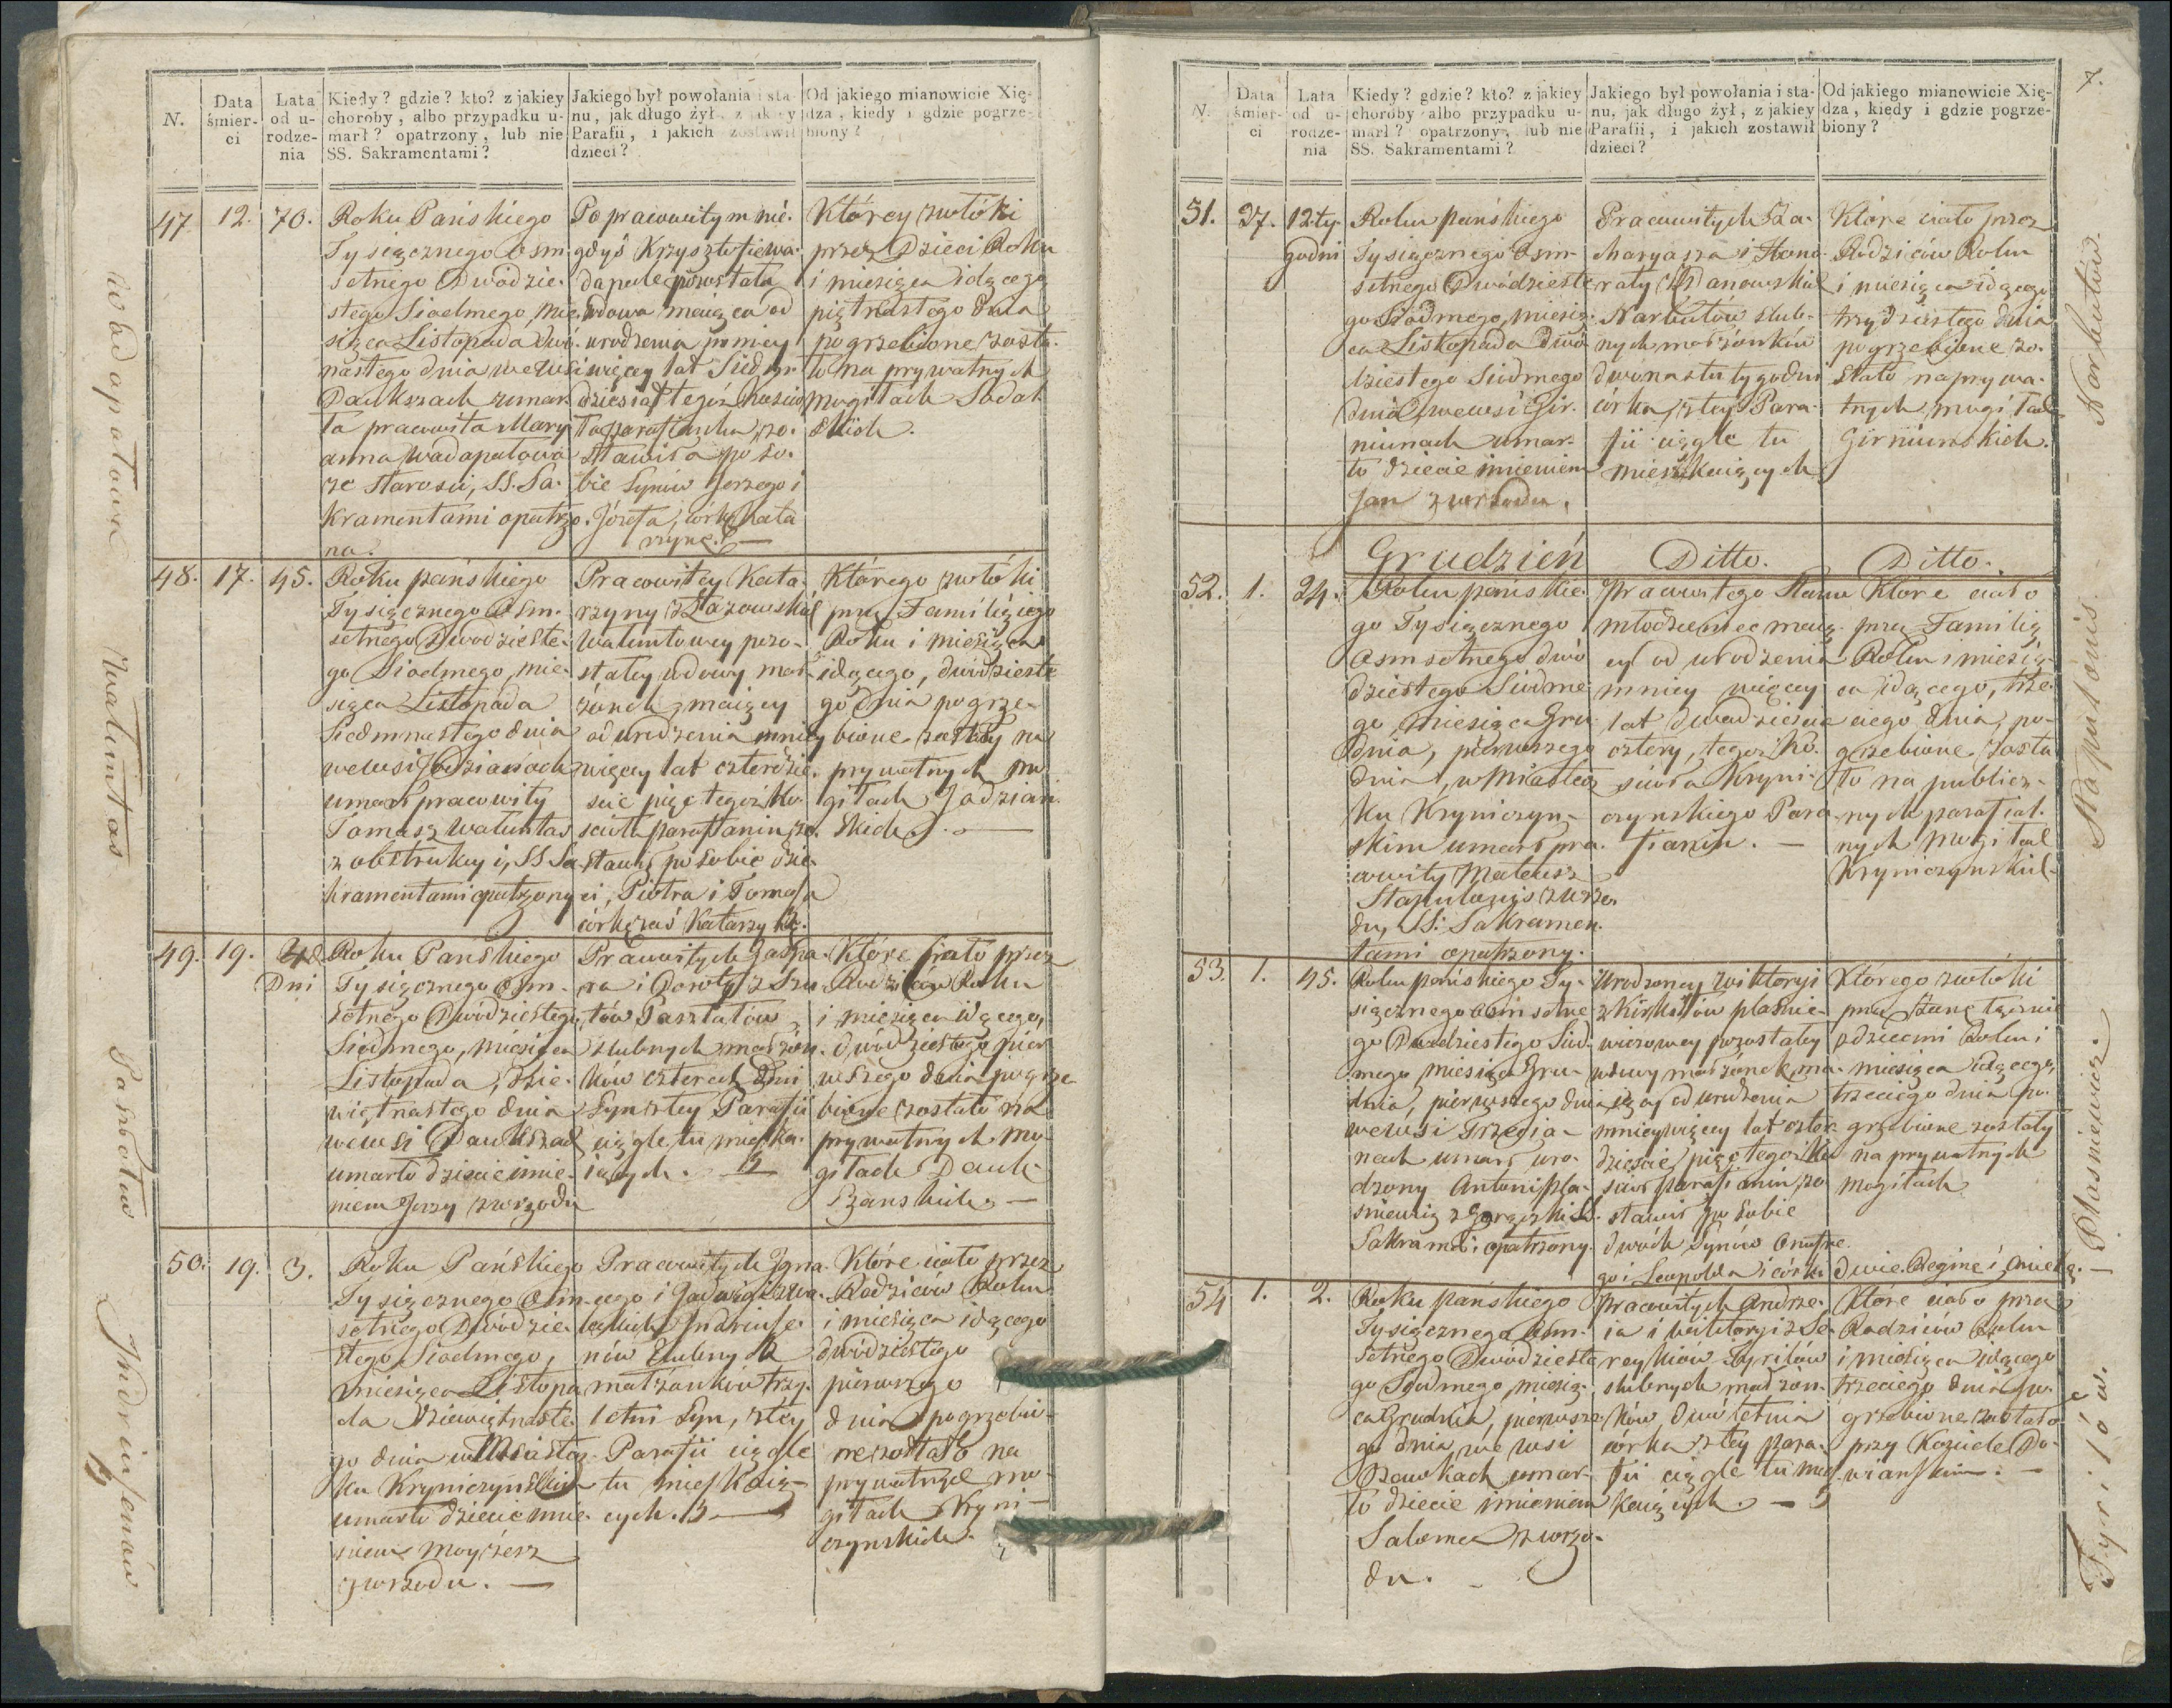 N.
Data śmier- ci
Lata od u- rodze- nia
Kiedy? gdzie? kto? z jakiey
choroby, albo przypadku u-
marł? opatrzony, lub nie
SS. Sakramentami?
Jakiego był powołania i sta-
nu, jak długo żył, z jakiey
Parafii, i jakich zostawił
dzieci?
Od jakiego mianowicie Xię-
dza, kiedy i gdzie pogrze-
biony?
47
12.
70.
Roku Pańskiego
Tysiącznego Osm-
setnego Dwódzie-
stego Siodmego, Mie-
siąca Listopada dwó-
nastego dnia we wsi
Daukszach umar-
ła pracowita Mary
anna Wadapałowa
ze starości, SS. Sa-
kramentami opatrzo-
na.
Po pracowitym nie-
gdyś Krzysztofie Wa-
dapale pozostała
wdowa maiąca od
urodzenia mniey
więcey lat Siedm-
dziesiąt tegóż Kościo
ła parafianka, zo-
stawiła po so-
bie Synów Jerzego i
Józefa, córkę Kata
rzynę.
Którey zwłóki
przez Dzieci Roku
i miesiąca idącego
piętnastego dnia
pogrzebione zosta-
ło na prywatnych
mogiłach
48.
17.
45.
Roku pańskiego
Tysiącznego Osm-
setnego Dwódzieste-
go Siodmego, mie-
siąca Listopada
Siedmnastego dnia
we wsi Jodzianiach
umarł pracowity
Tamasz Waluntas
z obstrukcyi, SS Sa-
kramentami opatrzony
Pracowitey Kata-
rzyny z Łazowskich
Waluntowey pozo-
stałey wdowy mał-
żonek, maiący
od urodzenia mniey
więcey lat czterdzie-
ście pięć tegóż Ko-
scioła parafianin, zo-
stawił po sobie dzie-
ci, Piotra i Tomasza
córkę zaś Katarzynę.
Którego zwłóki
przez Familię iego
Roku i miesiąca
idącego, dwódzieste
go dnia pogrze-
bione zostały na
prywatnych mo-
giłach Jodzian-
skich.
49.
19.
4
Dni
Roku Pańskiego
Tysiącznego Osm-
setnego Dwódziestego
Siodmego, miesiąca
Listopada, dzie-
więtnastego dnia
we wsi Daukszach
umarło dziecie imie-
niem Jerzy z wrzodu
Prawitych Jaspa-
ra i Doroty z Szu-
tów Pasztatów
slubnych małżon-
ków czterech Dni
Syn z tey Parafii
ciągle tu mieszka-
iących.
Które ciało przez
Rodziców Roku
i miesiąca idącego,
dwódziestego pier
wszego dnia pogrze
bione zostało na
prywatnych mo-
giłach Dauk-
szanskich.
50.
19.
3.
Roku Pańskiego
Tysiącznego Osm-
setnego Dwódzie-
stego Siodmego,
miesiąca Listopa
da Dziewiętnaste
go dnia w Miastecz-
ku Kryniczyńskim
umarło dziecie imie-
niem Moyżesz
z wrzodu.
Pracowitych Igna-
cego i Jadwigi z
Indriuse-
nów slubnych
małżonków trzy-
letni Syn, z tey
Parafii ciągle
tu mieszkaią-
cych.
Które ciało przez
Rodziców Roku
i miesiąca idącego
dwódziestego
pierwszego
dnia pogrzebio-
ne zostało na
prywatnych mo-
giłach Kryni-
czynskich.
Wadapałowa
Waluntas
Indriusenów
7.
N.
Data śmier- ci
Lata od u- rodze- nia
Kiedy? gdzie? kto? z jakiey
choroby albo przypadku u-
marł? opatrzony, lub nie
SS. Sakramentami?
Jakiego był powołania i sta-
nu, jak długo żył, z jakiey
Parafii, i jakich zostawił
dzieci?
Od jakiego mianowicie Xię-
dza, kiedy i gdzie pogrze-
biony?
51.
27.
12. ty-
godni
Roku pańskiego
Tysiącznego Osm-
setnego Dwódzieste
go Siódmego, miesią-
ca Listopada Dwó
dziestego Siodmego
dnia, we wsi Gir-
niunach umar-
ło dziecie imieniem
Jan z wrzodu.
Pracowitych Za-
charyasza i Hono-
raty z Danowskich
Narbutów slub-
nych małżonków
dwónastu tygodni
córka, z tey Para-
fii ciągle tu
mieszkaiących
Które ciało przez
Rodziców Roku
i miesiąca idącego
trzydziestego dnia
pogrzebione zo-
stało na prywa-
tnych mogiłach
Girniunskich.
Grudzień
Ditto.
Ditto.
52.
1.
24.
Roku pańskie-
go Tysiącznego
Osmsetnego dwó
dziestego Siodme
go miesiąca Gru
dnia, pierwszego
dnia, w Miastecz
ku Kryniczyn-
skim umarł pra-
cowity Mateusz
Stapulonis z wrzo-
du, SS. Sakramen-
tami opatrzony.
Pracowitego Stanu
młodzieniec maią-
cy od urodzenia
mniey więcey
lat dwadziescia
cztery, tegoż Ko-
scioła Kryni-
czynskiego Para
fianin.
Które ciało
przez Familią
Roku i miesią-
ca idącego, trze-
ciego dnia, po-
grzebione zosta
ło na publicz-
nych parafial-
nych mogiłach
Kryniczynskich
53.
1.
45.
Roku pańskiego Ty-
siącznego osmsetne
go Dwodziestego Siod-
mego miesiąca Gru-
dnia, pierwszego dnia
we wsi Grzegia-
nach umarł uro-
dzony Antoni Pla-
sniewicz z gorączki SS.
Sakramen: opatrzony.
Urodzoney Wiktoryi
z Kirkiłłów Plasnie-
wiczowey pozostałey
wdowy małżonek, ma-
iący od urodzenia
mniey więcey lat czter-
dziescie pięć tegoż Ko
scioła parafianin, zo
stawił po sobie
dwóch Synów Onufre-
go i Leopolda i córki dwie Reginę i Anielę.
Którego zwłóki
przez Żonę łącznie
z dziecmi Roku i
miesiąca idącego,
trzeciego dnia po-
grzebione zostały
na prywatnych
mogiłach
54
1.
2.
Roku pańskiego
Tysiącznego Osm-
setnego Dwódzieste
go Siodmego, miesią-
ca Grudnia, pierwsze
go dnia, we wsi
umar-
ło dziecie imieniem
Salomea z wrzo-
du.
Pracowitych Andrze-
ia i Wiktoryi z Se-
reykiów Tyrilów
slubnych małżon-
ków, dwóletnia
córka z tey Para-
fii ciągle tu miesz-
kaiących.
Które ciało przez
Rodziców Roku
i miesiąca idącego
trzeciego dnia po-
grzebione zostało
przy Kosciele Do-
wianskim.
Narbutów.
Stapulonis.
Plasniewicz.
Tyrilów.